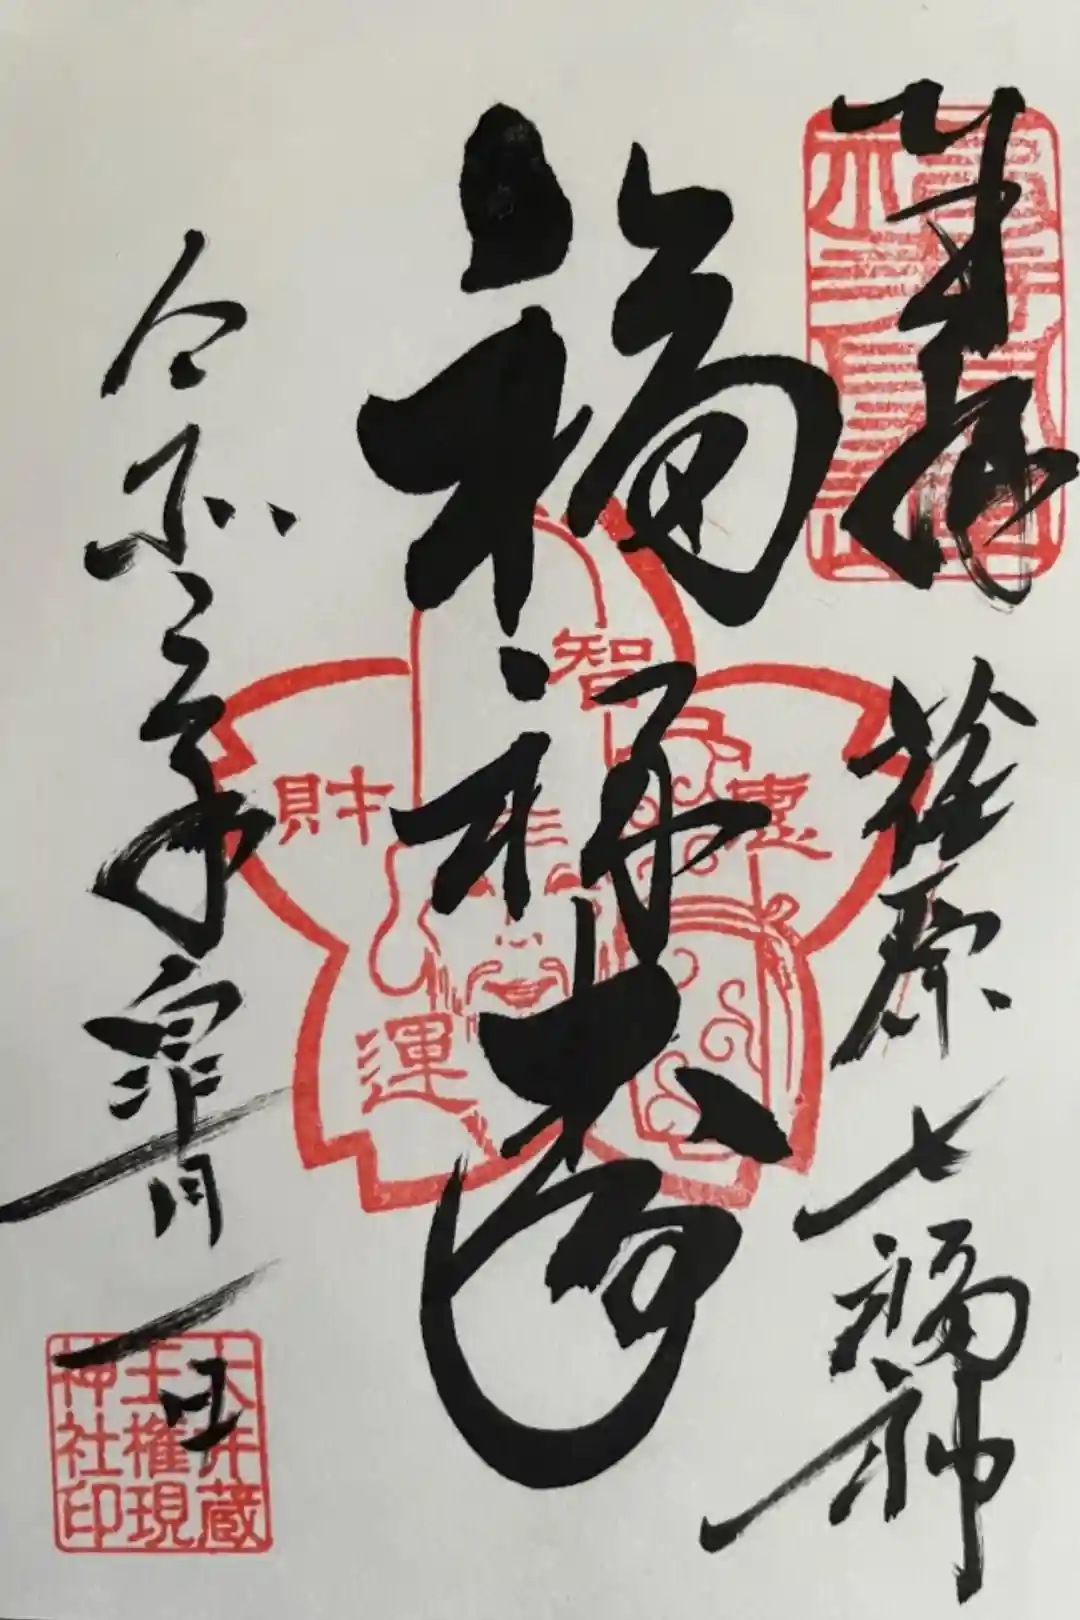 奉拝
荏原七福神
福禄寿
智
惠
財
運
令和 年 月一日
大井蔵
王権現
神社印